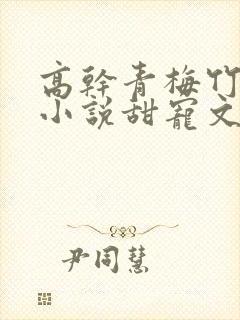 高幹青梅竹
小說甜寵文
尹同慧